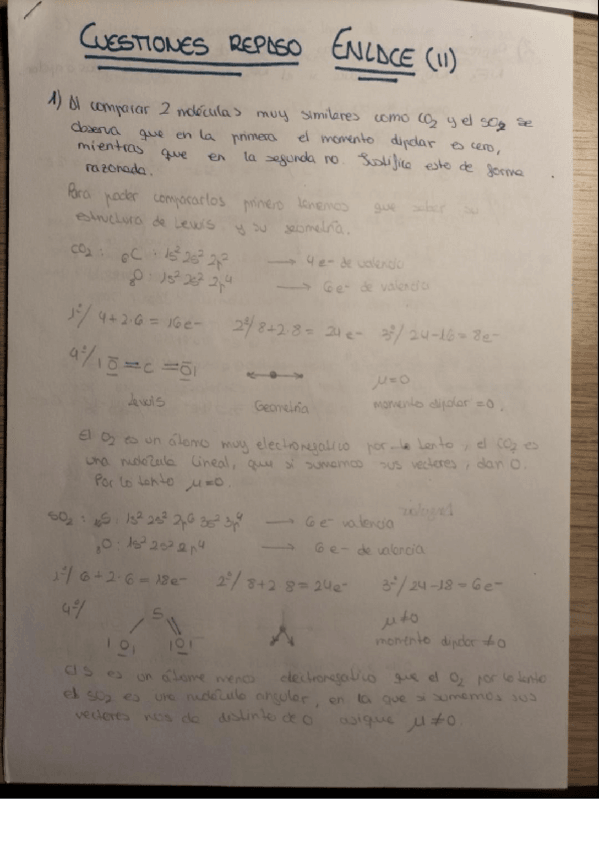 CUESTIONES REPASO ENLACE (II)
1) Al comparar 2 moléculas muy similares como CO2 y el SO2 se
observa que en la primera el momento dipolar es cero,
mientras que en la segunda no. Justifica esto de forma
razonada.
Para poder compararlos primero tenemos que saber su
estructura de Lewis y su geometría.
CO2 : 6C : 1s² 2s² 2p² → 4 e- de valencia
8O : 1s² 2s² 2p⁴ → 6 e- de valencia
1º/ 4+2·6 = 16e- 2º/ 8+2·8 = 24e- 3º/ 24-16 = 8e-
4º/ |O=C=O| μ=0
Lewis Geometría momento dipolar =0.
El O2 es un átomo muy electronegativo por lo tanto, el CO2 es
una molécula lineal, que si sumamos sus vectores, dan 0.
Por lo tanto μ=0.
SO2 : S : 1s² 2s² 2p⁶ 3s² 3p⁴ → 6 e- valencia
8O : 1s² 2s² 2p⁴ → 6 e- de valencia
1º/ 6+2·6 = 18e- 2º/ 8+2·8 = 24e- 3º/ 24-18 = 6e-
4º/ S μ≠0
|O| |O| momento dipolar ≠0
El S es un átomo menos electronegativo que el O2 por lo tanto
el SO2 es una molécula angular, en la que si sumamos sus
vectores nos da distinto de 0 asique μ≠0.